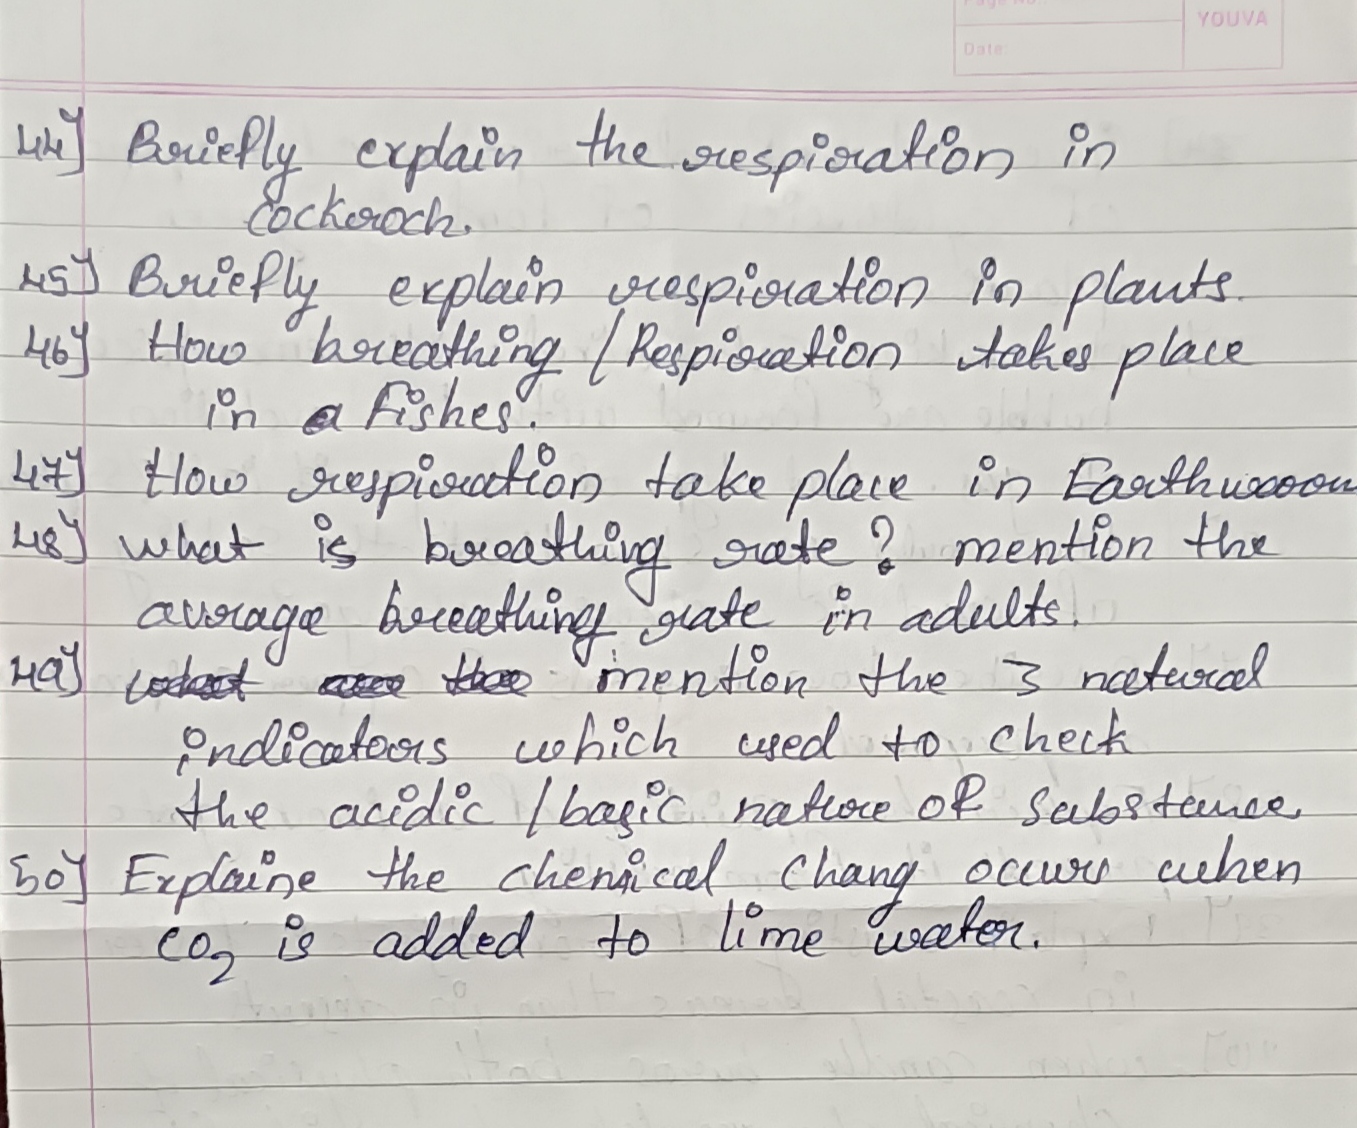 Page No.
Date
YOUVA
44) Briefly explain the respiration in
cockroch.
45) Briefly explain respiration in plants.
46) How breathing / Respiration takes place
in a fishes.
47) How respiration take place in Earthworm
48) what is breathing rate? mention the
average breathing rate in adults.
49) what are the mention the 3 natural
indicators which used to check
the acidic / basic nature of substance.
50) Explaine the chemical chang occurs when
CO2 is added to lime water.